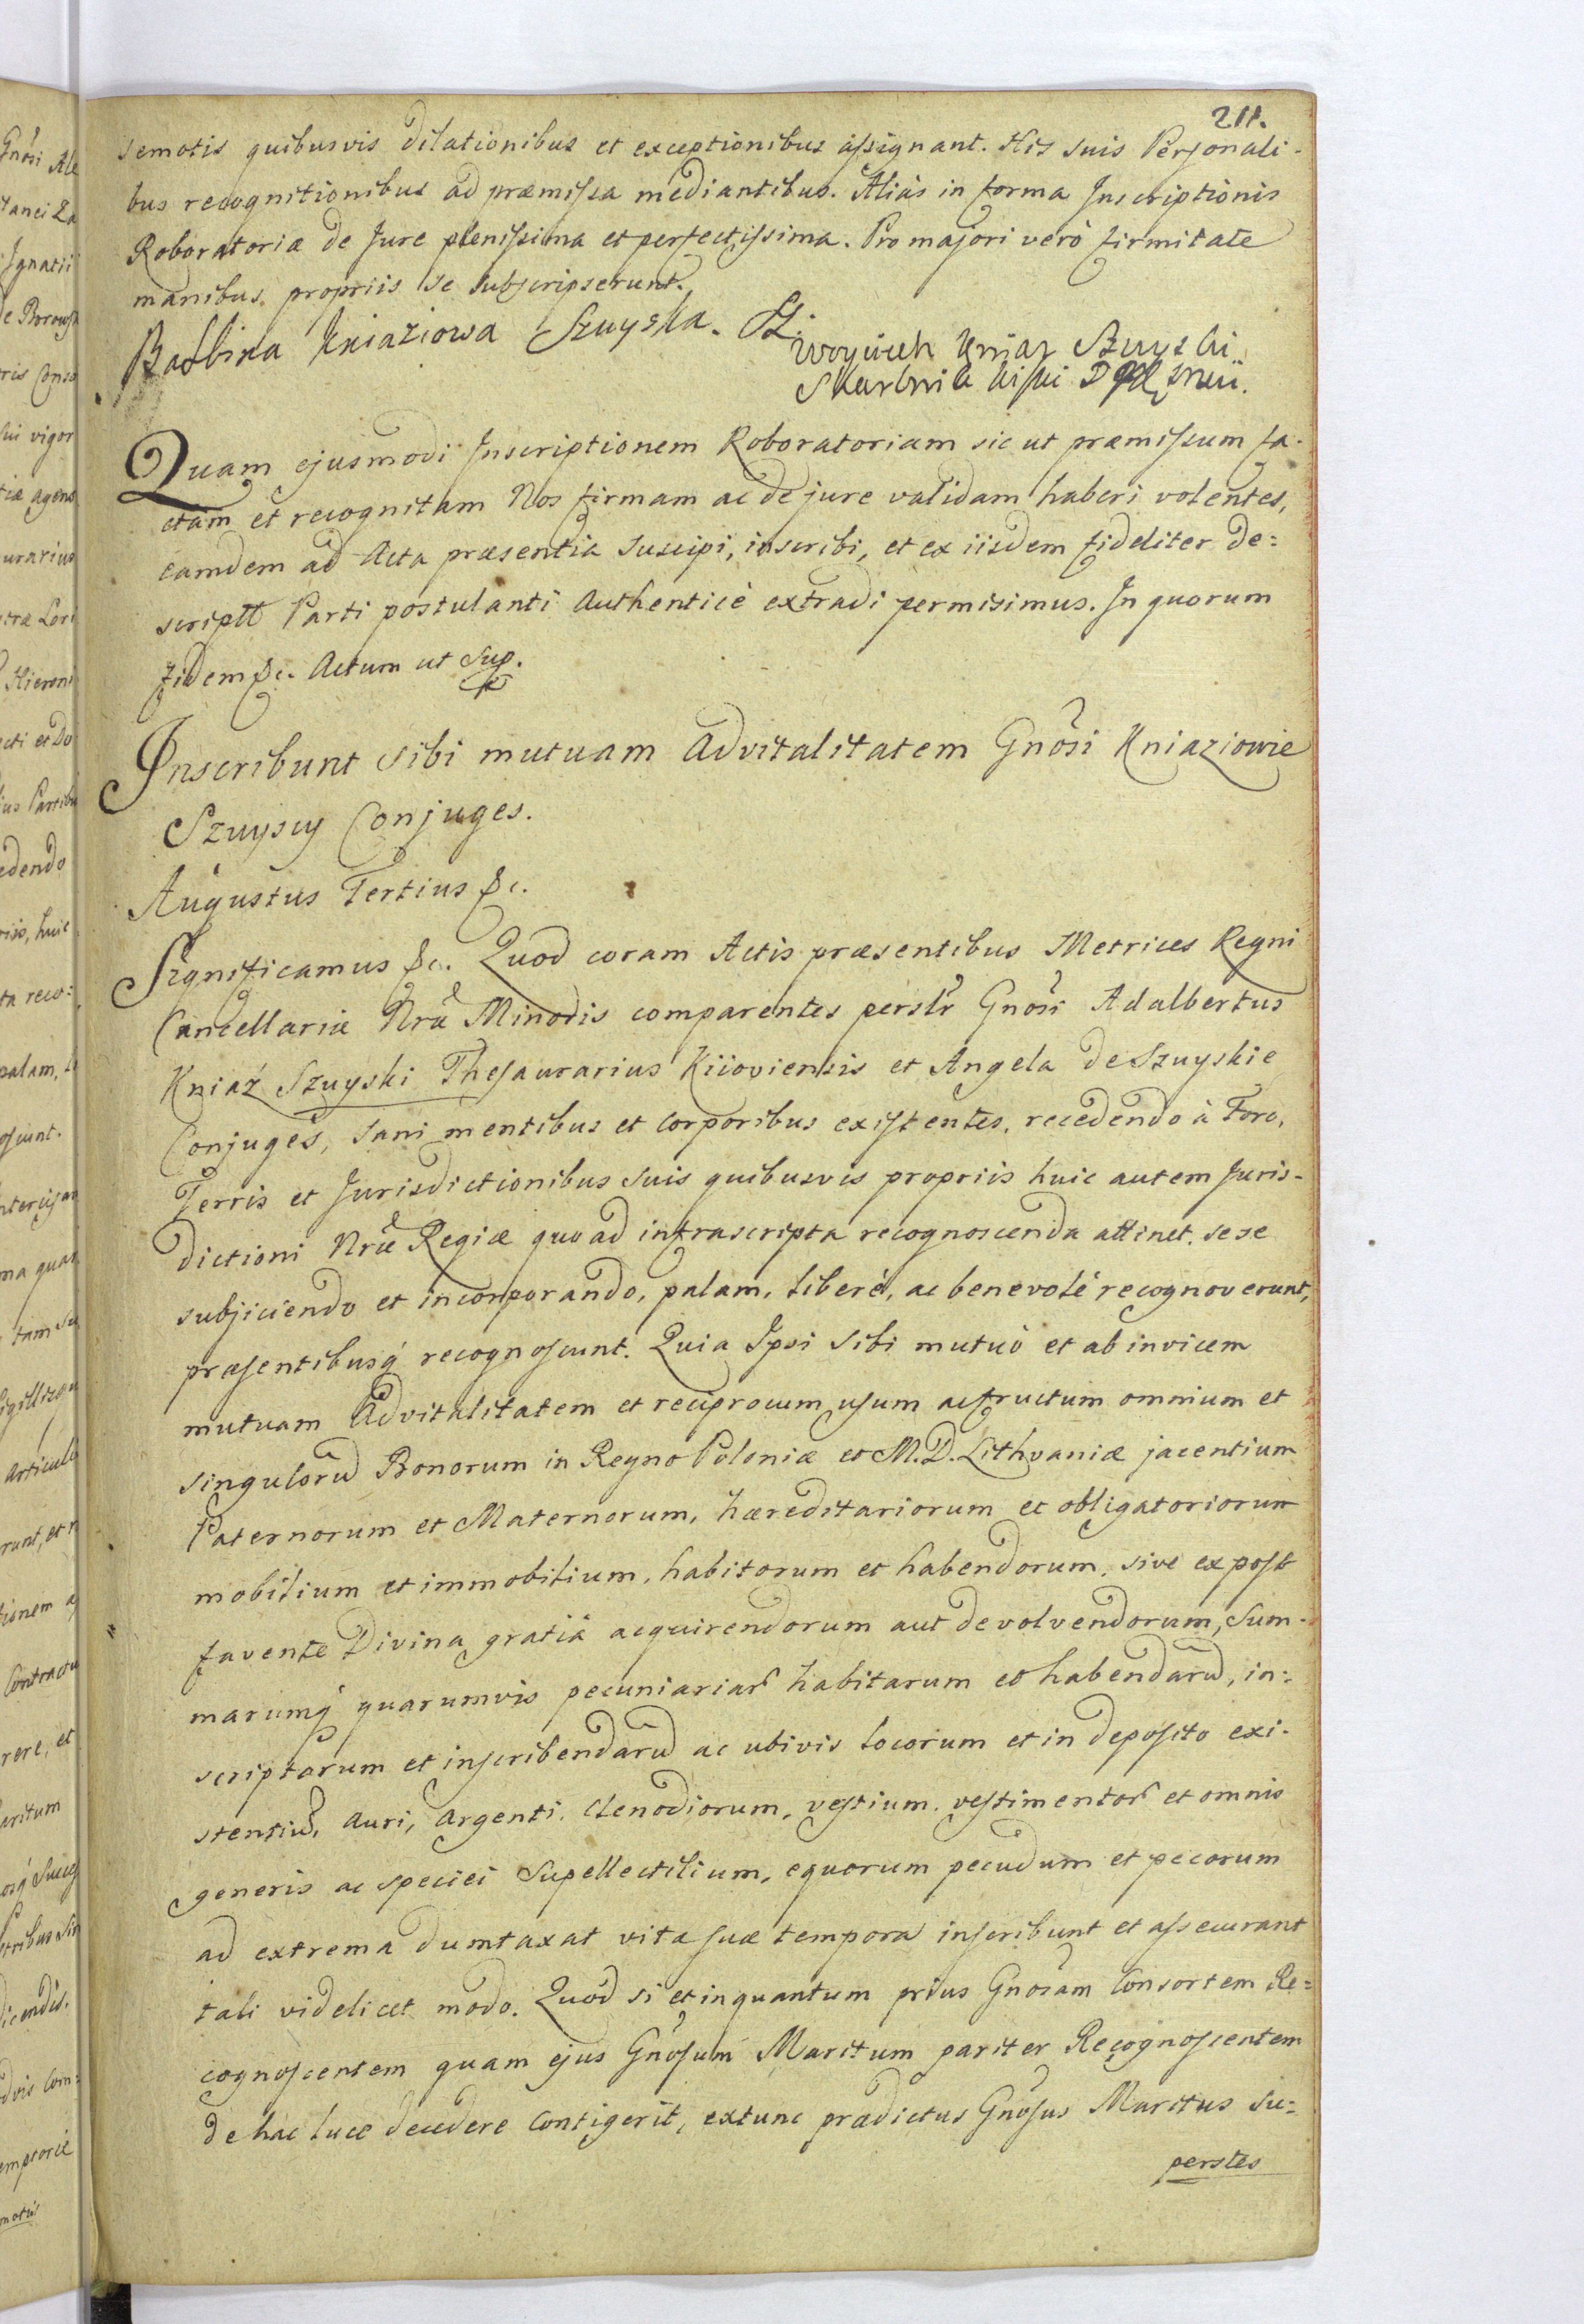 211.
semotis quibusvis dilationibus et exceptionibus assignant. His suis Personali-
bus recognitionibus ad præmissa mediantibus. Aliàs in forma Inscriptionis
Roboratoriæ de Jure plenissima et perfectissima. Pro majori verò firmitate
manibus propriis se subscripserunt.
Balbina Kniaziowa Szuyska.
Woyciech Kniaz Szuyski
Skarbnik
Quam ejusmodi Inscriptionem Roboratoriam sic ut præmissum fa-
ctam et recognitam Nos firmam ac de jure validam haberi volentes,
eamdem ad Acta præsentia suscipi, inscribi, et ex iisdem fideliter de=
scriptt Parti postulanti Authenticè extradi permisimus. In quorum
fidem &c. Actum ut Sup.
Inscribunt sibi mutuam Advitalitatem Gnõsi Kniaziowie
Szuyscy Conjuges.
Augustus Tertius &c.
Significamus &c. Quod coram Actis præsentibus Metrices Regni
Cancellariæ Nræ Minoris comparentes perslr Gnõsi Adalbertus
Kniaź Szuyski Thesaurarius Kiioviensis et Angela de Szuyskie
Conjuges, sani mentibus et corporibus existentes, recedendo à Foro,
Terris et Jurisdictionibus suis quibusvis propriis huic autem Juris-
dictioni Nræ Regiæ quo ad infrascripta recognoscenda attinet, sese
subjiciendo et incorporando, palam, liberè, ac benevolè recognoverunt,
præsentibusq́ recognoscunt. Quia Ipsi sibi mutuò et ab invicem
mutuam Advitalitatem et reciprocum usum ac fructum omnium et
singulorũ Bonorum in Regno Poloniæ et M. D. Lithvaniæ jacentium
Paternorum et Maternorum, hæreditariorum et obligatoriorum
mobilium et immobilium, habitorum et habendorum, sive ex post
favente Divina gratiâ acquirendorum aut devolvendorum, Sum-
marumq́ quarumvis pecuniariar̃ habitarum et habendarũ, in=
scriptarum et inscribendarũ ac ubivis locorum et in deposito exi-
stentiũ, Auri, Argenti, clenodiorum, vestium, vestimentor̃ et omnis
generis ac speciei Supellectilium, equorum pecudum et pecorum
ad extrema dumtaxat vitæ suæ tempora inscribunt et assecurant
tali videlicet modo. Quòd si et inquantum prius Gnõsam Consortem Re=
cognoscentem quam ejus Gnõsum Maritum pariter Recognoscentem
de hac luce decedere contigerit, extunc prædictus Gnõsus Maritus su=
perstes